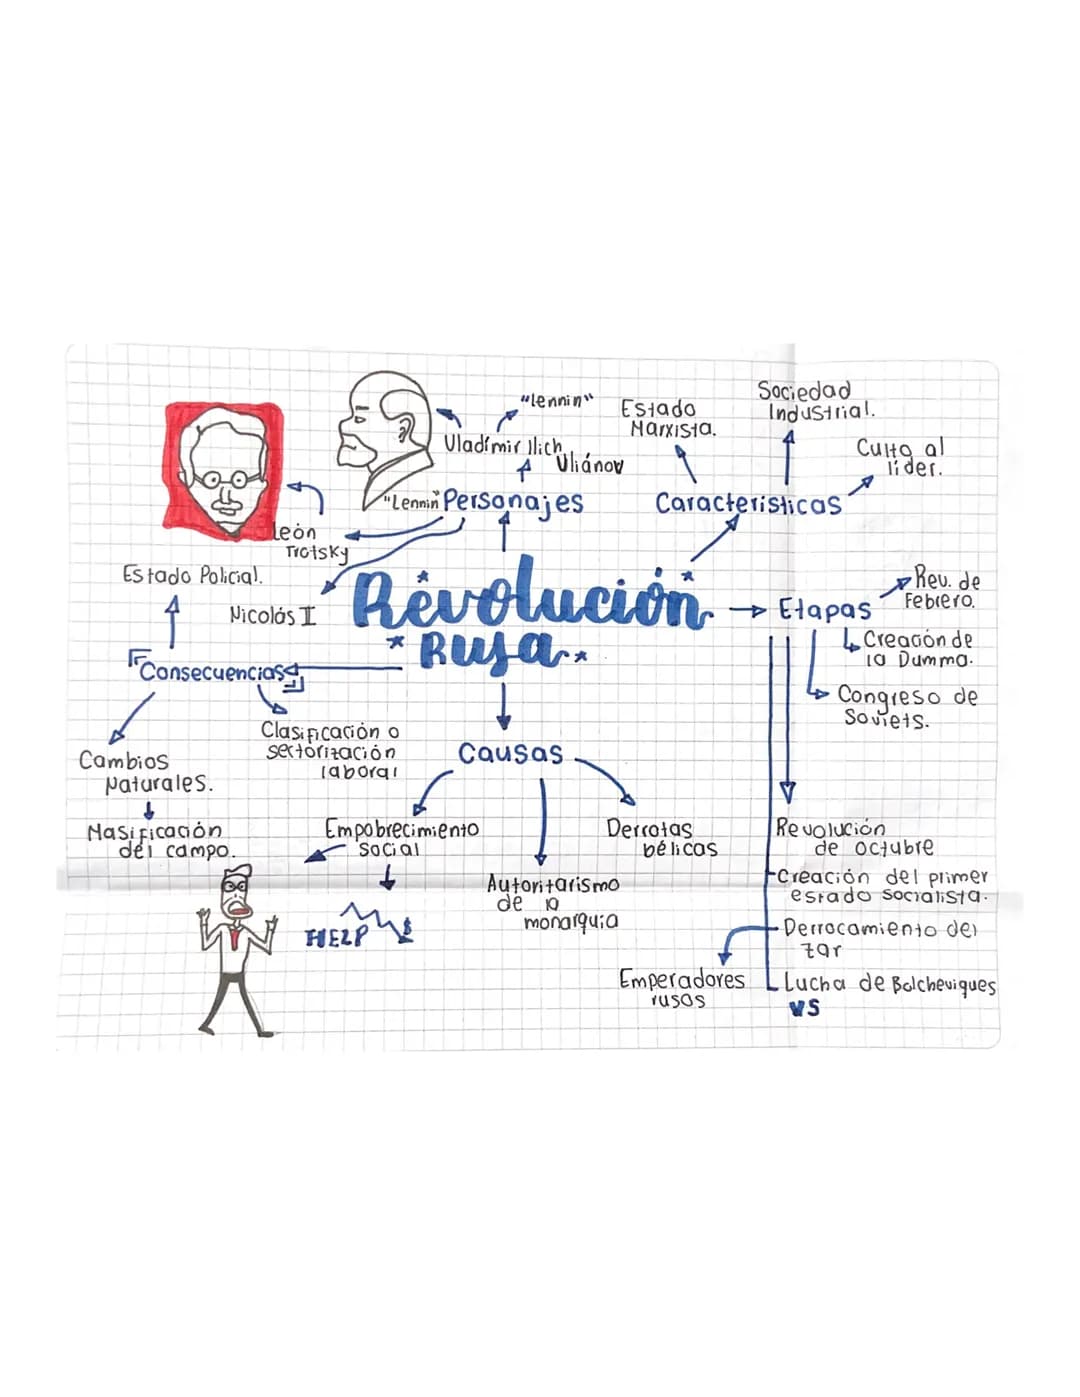 Revolución
Rusa
Personajes
Vladímir Ilich
Uliánov
"Lennin"
"Lennin"
León
Trotsky
Nicolás II
Características
Estado
Marxista.
Sociedad
Industrial.
Culto al
líder.
Etapas
Rev. de
Febrero.
Creación de
la Dumma.
Congreso de
Soviets.
Revolución
de octubre
Creación del primer
estado socialista.
Derrocamiento del
zar
Emperadores
rusos
Lucha de Bolcheviques
VS
Causas
Empobrecimiento
social
HELP
$
Autoritarismo
de la
monarquia
Derrotas
bélicas
Consecuencias
Estado Policial.
Clasificación o
sectorización
laboral
Cambios
Naturales.
Masificación
del campo.